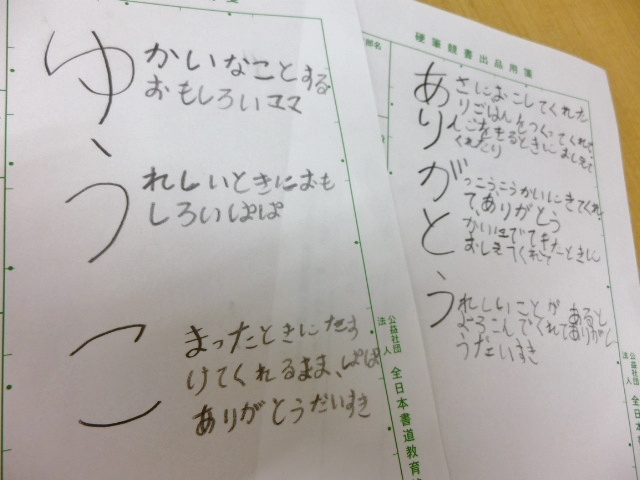 ゆ
かいなことする
おもしろいママ
う
れしいときにおも
しろいぱぱ
こ
まったときにたす
けてくれるまま、ぱぱ
ありがとうだいすき
公益社団
法人
全日本書道教育
硬筆競書出品用箋
部名
あ
さにおこしてくれた
り
ごはんをつくってくれて
くれたり
が
っこうこうかいにきてくれ
て、ありがとう
と
おしえてくれて
う
れしいことがあると
よろこんでくれてありがと
うだいすき
公益社団
法人
全日本書道教育